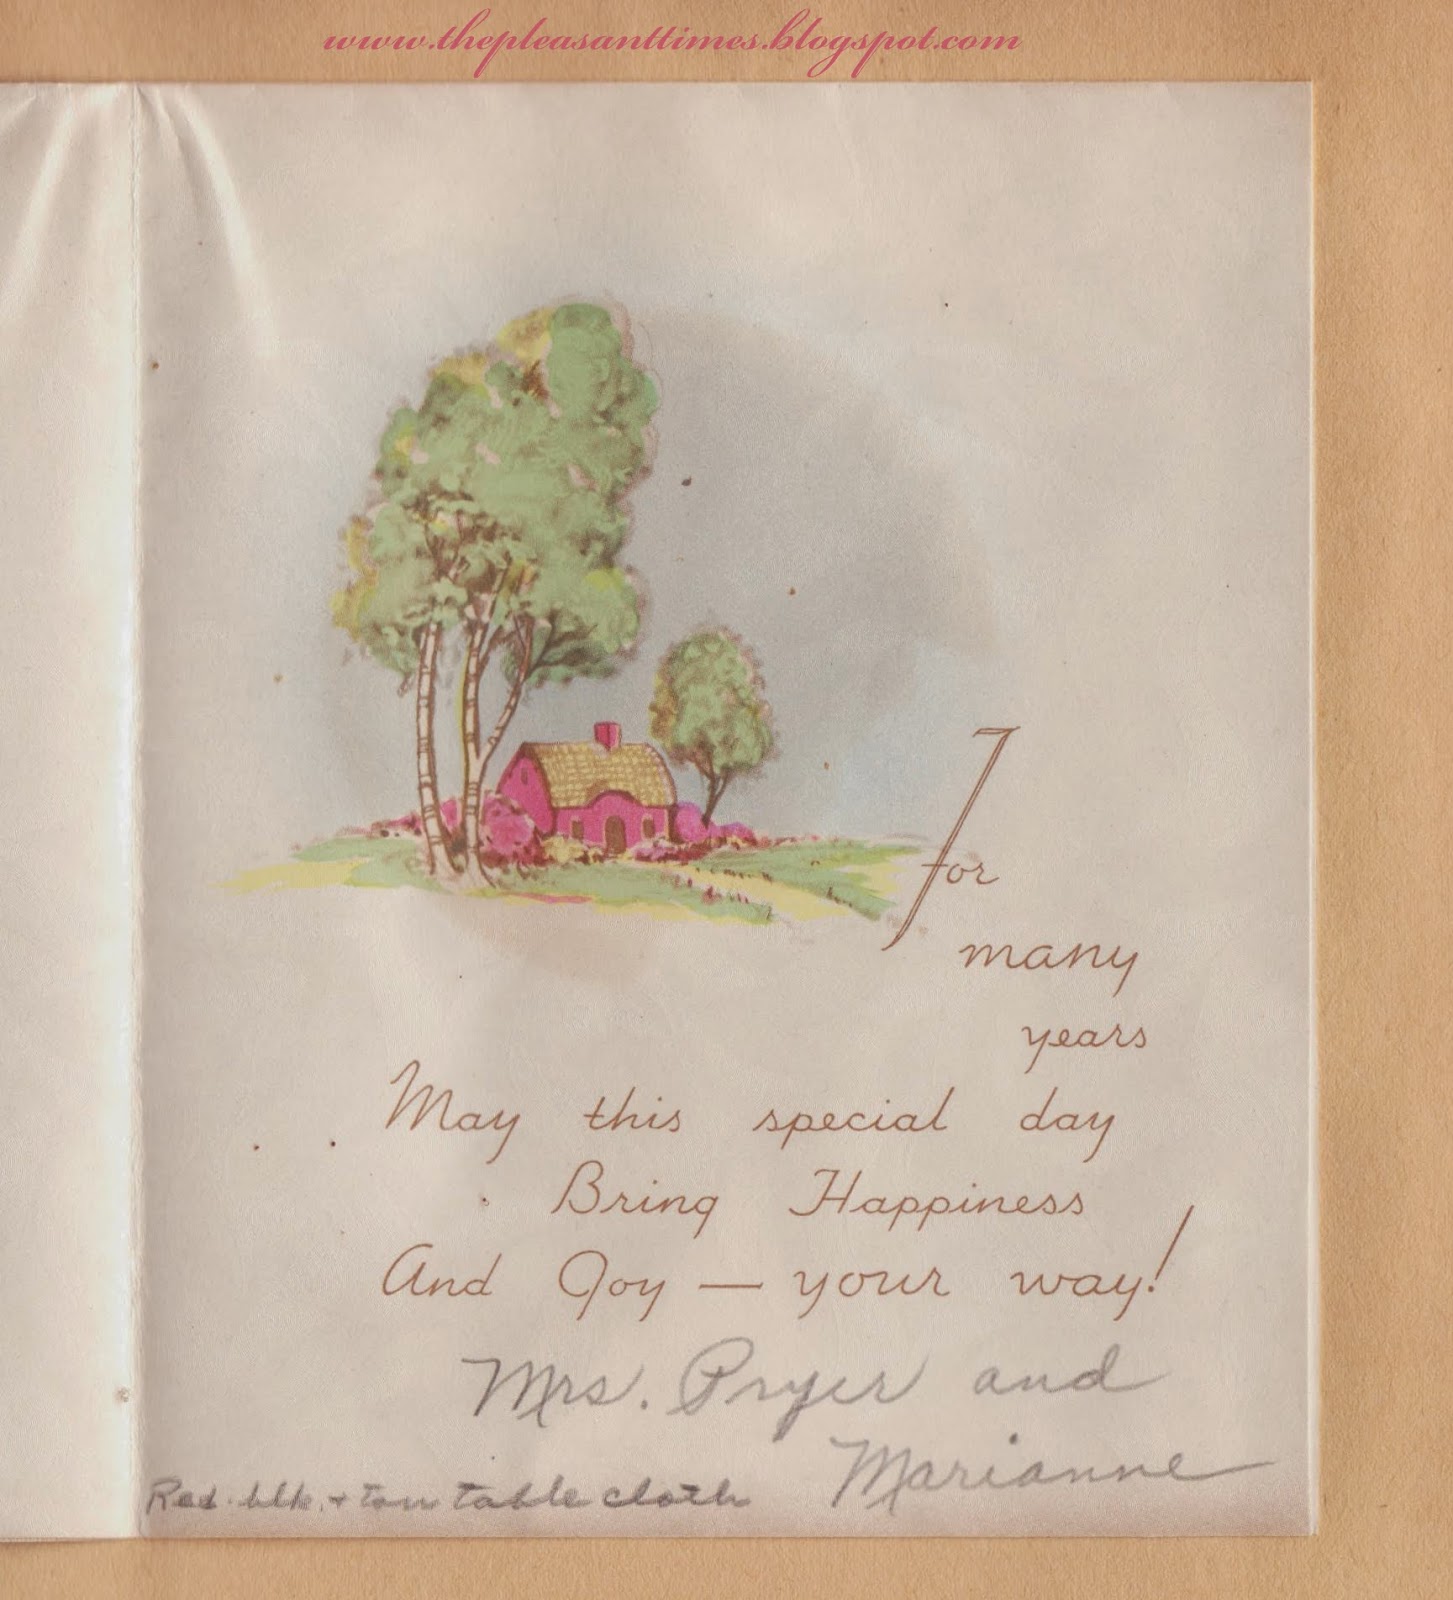 www.thepleasanttimes.blogspot.com
For
many
years
May this special day
Bring Happiness
And Joy — your way!
Mrs. Pryer and
Marianne
Red. blk. + tan table cloth